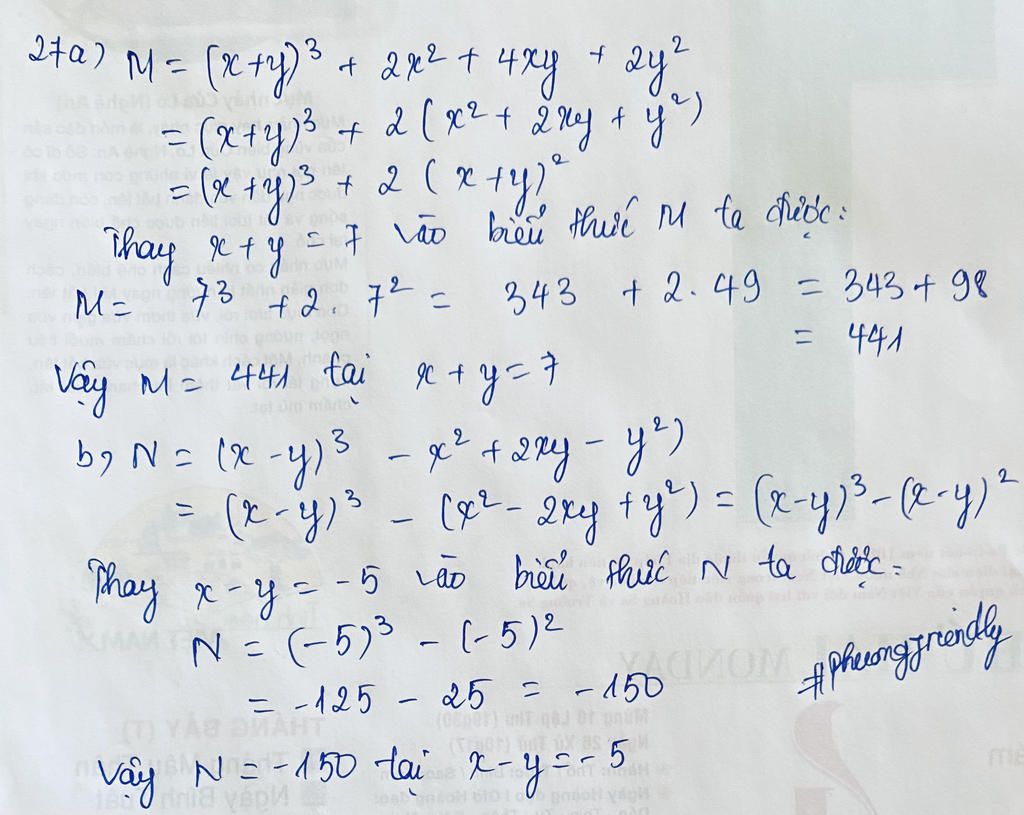 27a) M = (x+y)³ + 2x² + 4xy + 2y²
= (x+y)³ + 2(x² + 2xy + y²)
= (x+y)³ + 2(x+y)²
Thay x + y = 7 vào biểu thức M ta được:
M = 7³ + 2. 7² = 343 + 2. 49 = 343 + 98
= 441
Vậy M = 441 tại x + y = 7
b, N = (x-y)³ - x² + 2xy - y²)
= (x-y)³ - (x² - 2xy + y²) = (x-y)³ - (x-y)²
Thay x - y = -5 vào biểu thức N ta được:
N = (-5)³ - (-5)²
= -125 - 25 = -150
#phuongfriendly
Vậy N = -150 tại x - y = -5